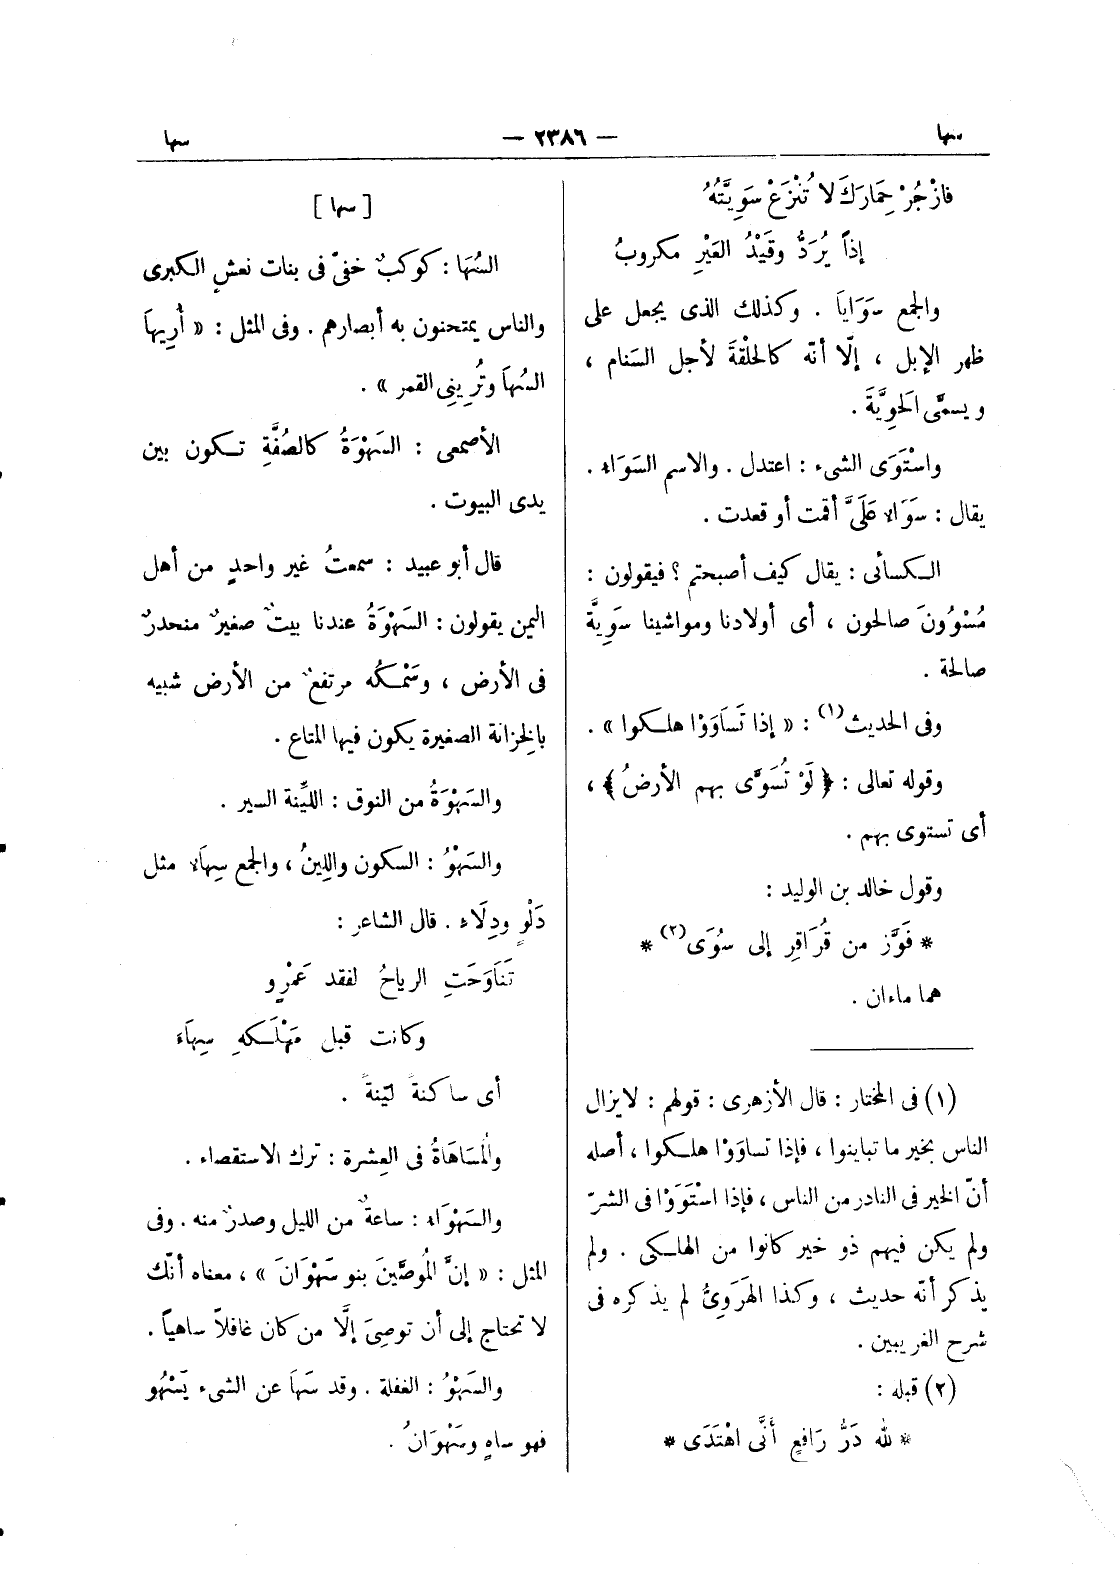 سها
— ٢٣٨٦ —
سها
فازْجُرْ حِمَارَكَ لا تُنْزَعْ سَوِيَّتُهُ
إذاً يُرَدُّ وقَيْدُ العَيْرِ مكروبُ
والجمع سَوَاياَ . وكذلك الذى يجعل على
ظهر الإبل ، إلّا أنّه كالحلْقةَ لأجل السَنام ،
ويسمَّى الحَوِيَّةَ .
واسْتَوَى الشىء : اعتدل . والاسم السَوَاء .
يقال : سَوَاء عَلَىَّ أقمت أو قعدت .
الكسأئى : يقال كيف أصبحتم ؟ فيقولون :
مُسْوُونَ صالحون ، أى أولادنا ومواشينا سَوِيَّة
صالحة .
وفى الحديث (١) : « إذا تَساَوَوْا هلكوا » .
وقوله تعالى : ﴿ لَوْ تُسَوَّى بهم الأرضُ ﴾ ،
أى تستوى بهم .
وقول خالد بن الوليد :
* فَوَّز من قُرَاقِرٍ إلى سُوَى (٢) *
هما ماءان .
(١) فى المختار : قال الأزهرى : قولهم : لا يزال
الناس بخير ما تباينوا ، فإذا تساوَوْا هلكوا ، أصله
أنّ الخير فى النادر من الناس ، فإذا اسْتَوَوْا فى الشرّ
ولم يكن فيهم ذو خير كانوا من الهلكى . ولم
يذكر أنّه حديث ، وكذا الهَرَوِىُّ لم يذكره فى
شرح الغريبين .
(٢) قبله :
* لله دَرُّ رَافِعٍ أَنَّى اهْتَدَى *
[ سها ]
السُهَا : كوكبٌ خفىّ فى بنات نعشٍ الكبرى
والناس يمتحنون به أبصارهم . وفى المثل : « أُرِيهاَ
السُهاَ وتُرِينِى القمر » .
الأصمعى : السَهْوَةُ كالصُفَّةِ تكون بين
يدى البيوت .
قال أبو عبيد : سمعتُ غير واحدٍ من أهل
اليمن يقولون : السَهْوَةُ عندنا بيتٌ صغيرٌ منحدرٌ
فى الأرض ، وسَمْكُه مرتفعٌ من الأرض شبيه
بالخِزانة الصغيرة يكون فيها المتاع .
والسَهْوَةُ من النوق : الليِّنة السير .
والسَهْوُ : السكون واللِينُ ، والجمع سِهاَء مثل
دَلْوٍ ودِلَاء . قال الشاعر :
تَنَاوَحَتِ الرياحُ لفقد عَمْرٍو
وكانت قبل مَهْلَكهِ سِهاَءَ
أى ساكنةً ليّنةً .
والْمُسَاهَاةُ فى العِشرة : ترك الاستقصاء .
والسَهْوَاء : ساعةٌ من الليل وصدرٌ منه . وفى
المثل : « إنَّ الْمُوصَّيْنَ بنو سَهْوَانَ » ، معناه أنّك
لا تحتاج إلى أن توصِىَ إلَّا من كان غافلاً ساهياً .
والسَهْوُ : الغفلة . وقد سَهاَ عن الشىء يَسْهُو
فهو ساهٍ وسَهْوَانُ .